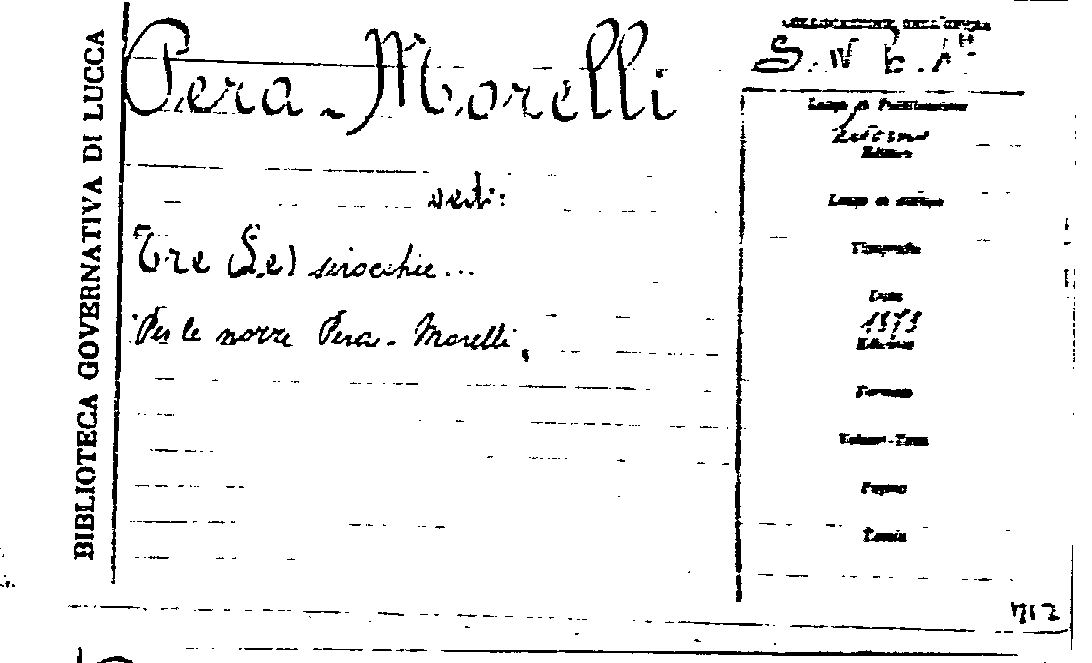 BIBLIOTECA GOVERNATIVA DI LUCCA
Pera - Morelli
vedi:
Tre (Le) sirocchie...
Per le nozze Pera - Morelli.
COLLOCAZIONE DELL'OPERA
Luogo di Pubblicazione
Editore
Luogo di stampa
Tipografia
Data
1873
Edizione
Formato
Volumi-Tomi
Pagine
Tavole
712